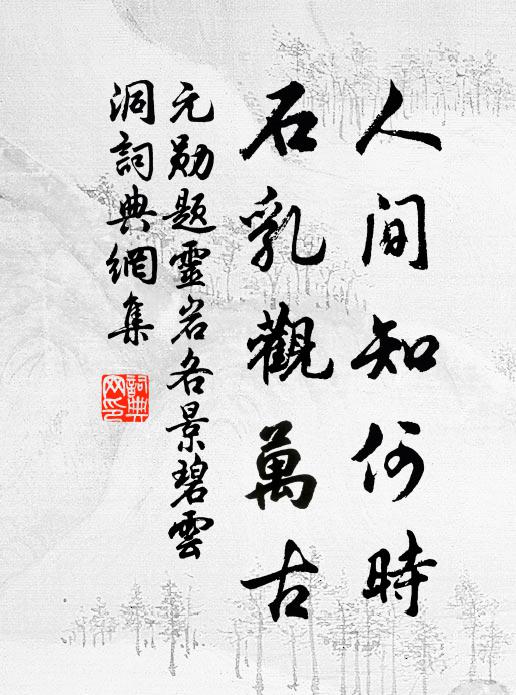 人間知何時
石乳觀萬古
元勛題靈岩各景碧雲
洞詞典網集
詞典
网印